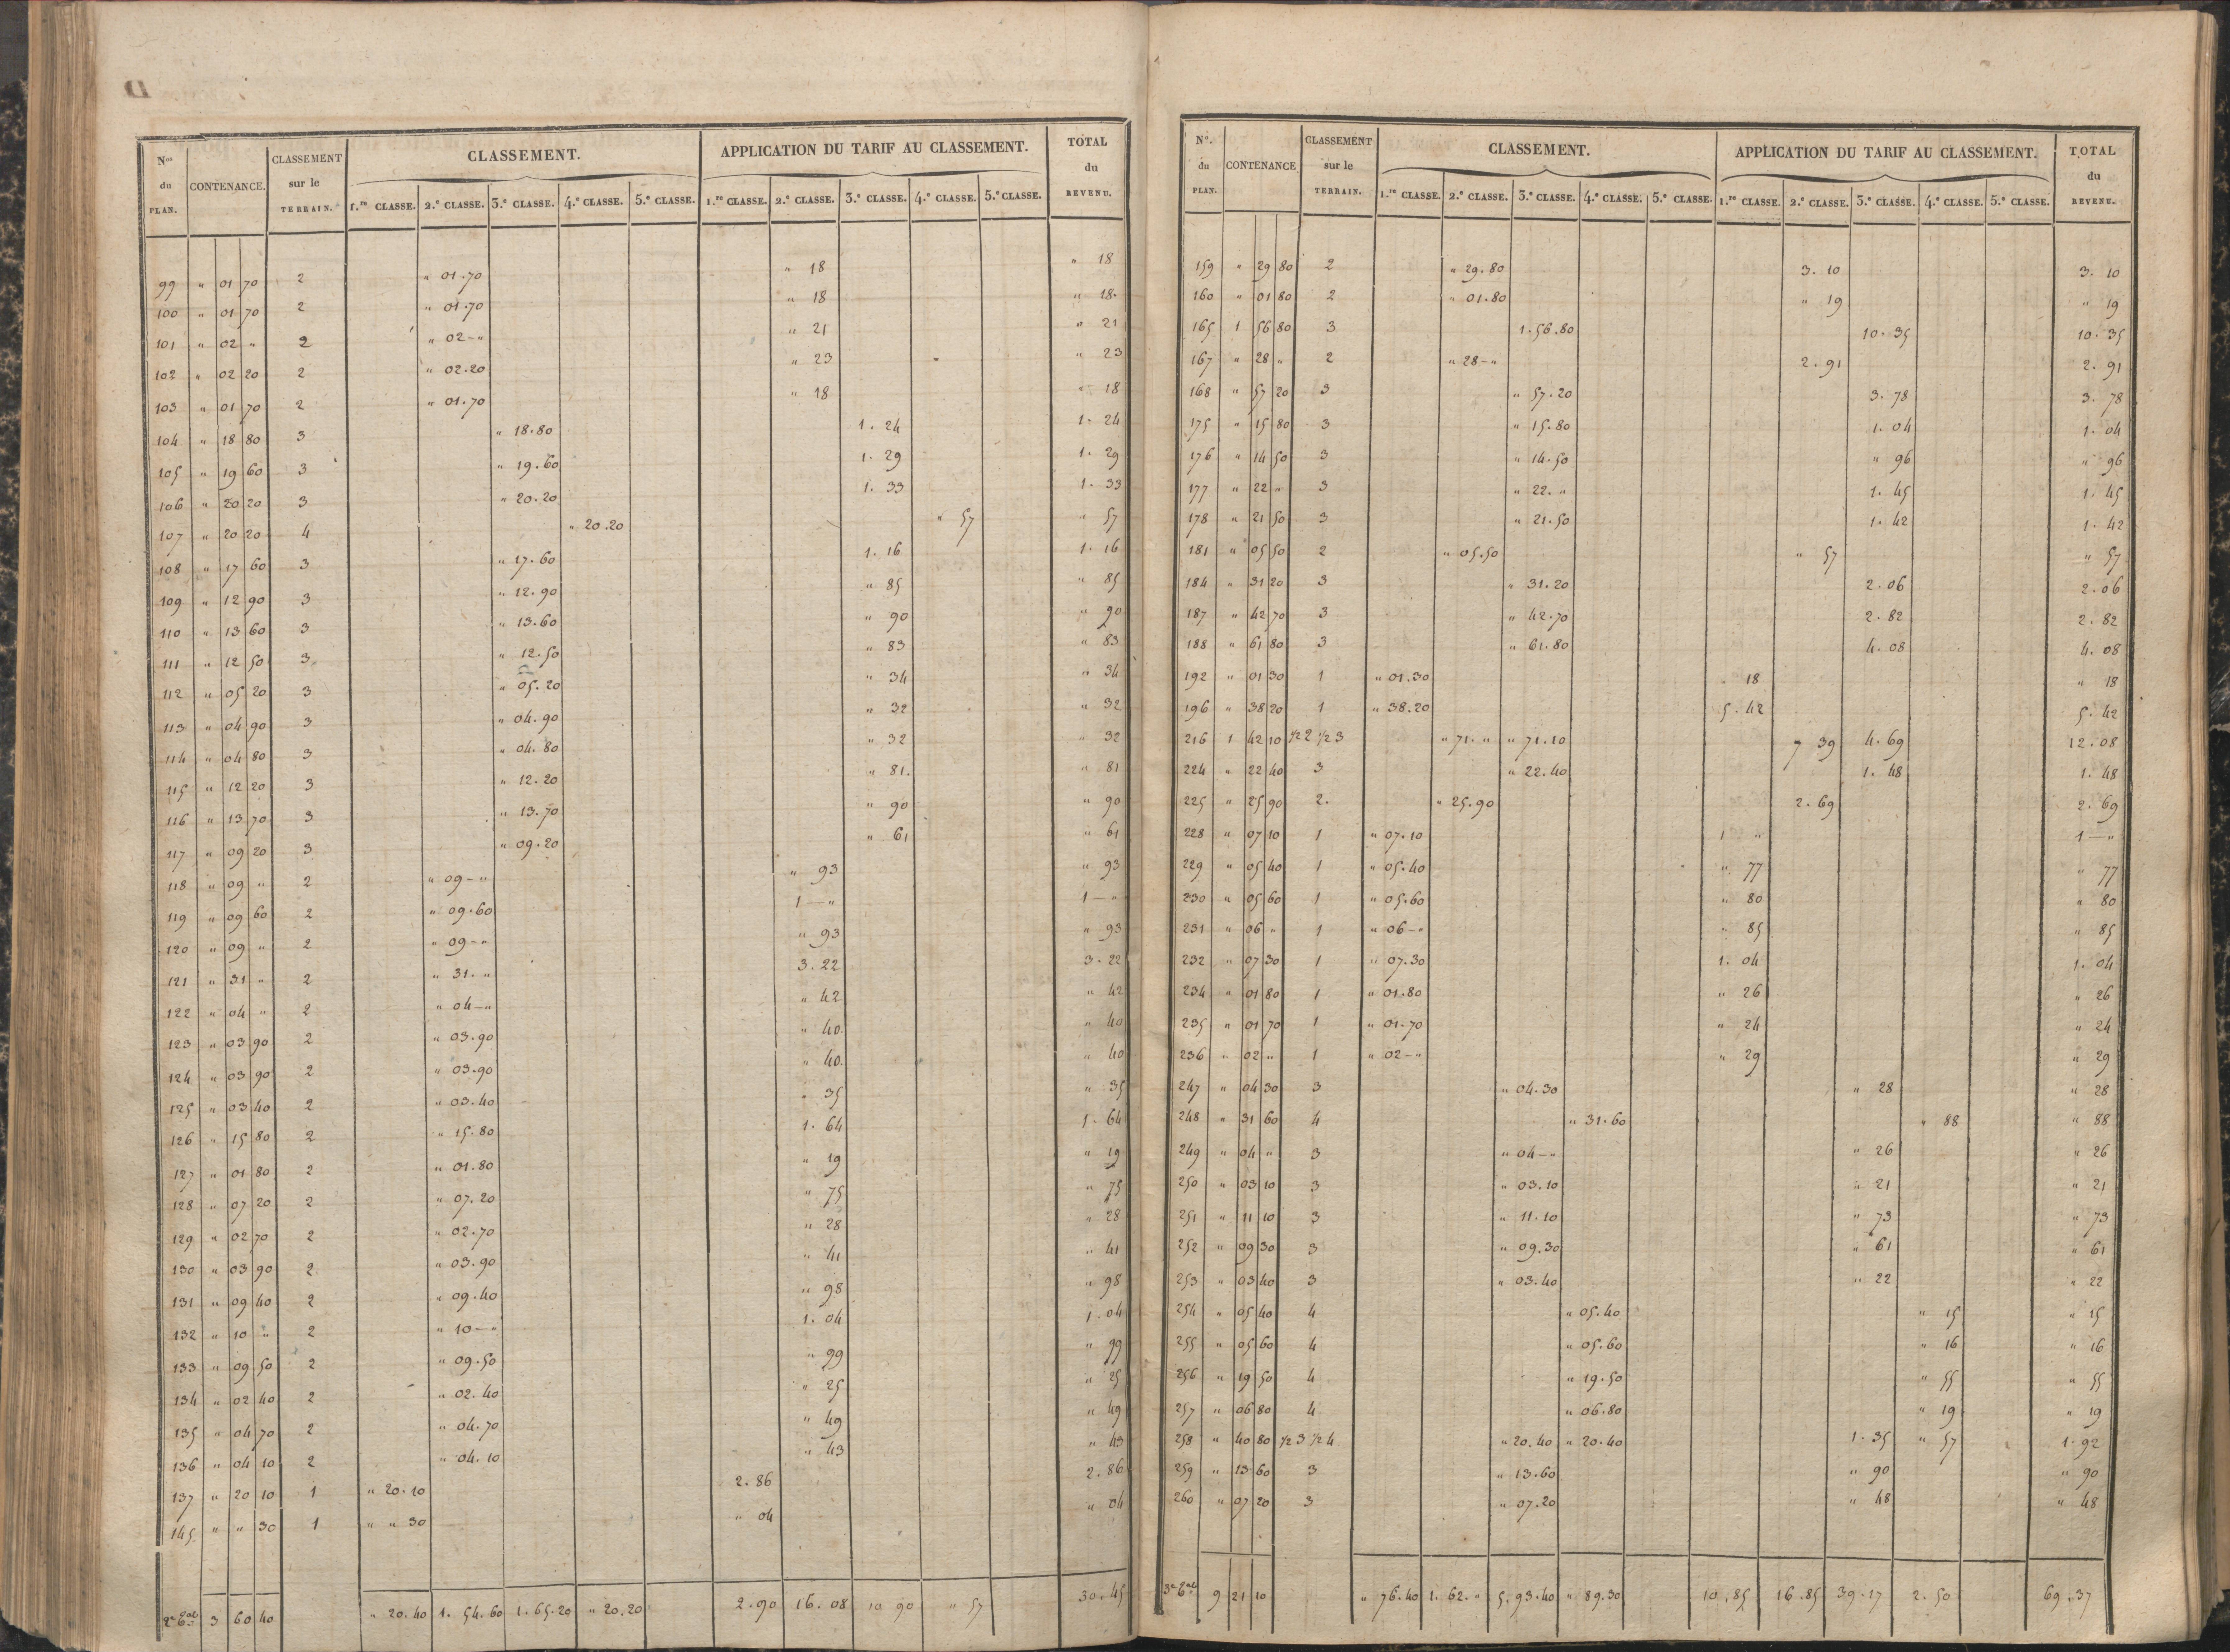 Nos du PLAN. CONTENANCE. CLASSEMENT sur le TERRAIN. CLASSEMENT. APPLICATION DU TARIF AU CLASSEMENT. TOTAL du REVENU.
1.re CLASSE. 2.e CLASSE. 3.e CLASSE. 4.e CLASSE. 5.e CLASSE. 1.re CLASSE. 2.e CLASSE. 3.e CLASSE. 4.e CLASSE. 5.e CLASSE.
99 " 01 70 2 " 01.70 " 18 " 18
100 " 01 70 2 " 01.70 " 18 " 18.
101 " 02 " 2 " 02-" " 21 " 21
102 " 02 20 2 " 02.20 " 23 " 23
103 " 01 70 2 " 01.70 " 18 " 18
104 " 18 80 3 " 18.80 1. 24 1. 24
105 " 19 60 3 " 19.60 1. 29 1. 29
106 " 20 20 3 " 20.20 1. 33 1. 33
107 " 20 20 4 " 20.20 " 57 " 57
108 " 17 60 3 " 17.60 1. 16 1. 16
109 " 12 90 3 " 12.90 " 85 " 85
110 " 13 60 3 " 13.60 " 90 " 90
111 " 12 50 3 " 12.50 " 83 " 83
112 " 05 20 3 " 05.20 " 34 " 34
113 " 04 90 3 " 04.90 " 32 " 32
114 " 04 80 3 " 04.80 " 32 " 32
115 " 12 20 3 " 12.20 " 81. " 81
116 " 13 70 3 " 13.70 " 90 " 90
117 " 09 20 3 " 09.20 " 61 " 61
118 " 09 " 2 " 09-" " 93 " 93
119 " 09 60 2 " 09.60 1-" 1-"
120 " 09 " 2 " 09-" " 93 " 93
121 " 31 " 2 " 31. " 3.22 3.22
122 " 04 " 2 " 04-" " 42 " 42
123 " 03 90 2 " 03.90 " 40. " 40
124 " 03 90 2 " 03.90 " 40. " 40
125 " 03 40 2 " 03.40 " 35 " 35
126 " 15 80 2 " 15.80 1. 64 1. 64
127 " 01 80 2 " 01.80 " 19 " 19
128 " 07 20 2 " 07.20 " 75 " 75
129 " 02 70 2 " 02.70 " 28 " 28
130 " 03 90 2 " 03.90 " 41 " 41
131 " 09 40 2 " 09.40 " 98 " 98
132 " 10 " 2 " 10-" 1. 04 1. 04
133 " 09 50 2 " 09.50 " 99 " 99
134 " 02 40 2 " 02.40 " 25 " 25
135 " 04 70 2 " 04.70 " 49 " 49
136 " 04 10 2 " 04.10 " 43 " 43
137 " 20 10 1 " 20.10 2.86 2.86
145 " " 30 1 " " 30 " 04 " 04
3 60 40 " 20.40 1. 54.60 1.65.20 " 20.20 2.90 16.08 10 90 " 57 30.45
No. du PLAN. CONTENANCE CLASSEMENT sur le TERRAIN. CLASSEMENT. APPLICATION DU TARIF AU CLASSEMENT. TOTAL du REVENU.
1.re CLASSE. 2.e CLASSE. 3.e CLASSE. 4.e CLASSE. 5.e CLASSE. 1.re CLASSE. 2.e CLASSE. 3.e CLASSE. 4.e CLASSE. 5.e CLASSE.
159 " 29 80 2 " 29.80 3. 10 3. 10
160 " 01 80 2 " 01.80 " 19 " 19
165 1 56 80 3 1.56.80 10.35 10.35
167 " 28 " 2 " 28-" 2.91 2.91
168 " 57 20 3 " 57.20 3. 78 3. 78
175 " 15 80 3 " 15.80 1. 04 1. 04
176 " 14 50 3 " 14.50 " 96 " 96
177 " 22 " 3 " 22. " 1. 45 1. 45
178 " 21 50 3 " 21.50 1. 42 1. 42
181 " 05 50 2 " 05.50 " 57 " 57
184 " 31 20 3 " 31.20 2.06 2.06
187 " 42 70 3 " 42.70 2. 82 2. 82
188 " 61 80 3 " 61.80 4. 08 4. 08
192 " 01 30 1 " 01.30 " 18 " 18
196 " 38 20 1 " 38.20 5.42 5.42
216 1 42 10 1/2 2 1/2 3 " 71. " " 71.10 7 39 4.69 12.08
224 " 22 40 3 " 22.40 1. 48 1. 48
225 " 25 90 2. " 25.90 2.69 2.69
228 " 07 10 1 " 07.10 1 " 1-"
229 " 05 40 1 " 05.40 " 77 " 77
230 " 05 60 1 " 05.60 " 80 " 80
231 " 06 " 1 " 06-" " 85 " 85
232 " 07 30 1 " 07.30 1. 04 1. 04
234 " 01 80 1 " 01.80 " 26 " 26
235 " 01 70 1 " 01.70 " 24 " 24
236 " 02 " 1 " 02-" " 29 " 29
247 " 04 30 3 " 04.30 " 28 " 28
248 " 31 60 4 " 31.60 " 88 " 88
249 " 04 " 3 " 04-" " 26 " 26
250 " 03 10 3 " 03.10 " 21 " 21
251 " 11 10 3 " 11.10 " 73 " 73
252 " 09 30 3 " 09.30 " 61 " 61
253 " 03 40 3 " 03.40 " 22 " 22
254 " 05 40 4 " 05.40 " 15 " 15
255 " 05 60 4 " 05.60 " 16 " 16
256 " 19 50 4 " 19.50 " 55 " 55
257 " 06 80 4 " 06.80 " 19 " 19
258 " 40 80 1/2 3 1/2 4 " 20.40 " 20.40 1. 35 " 57 1.92
259 " 13 60 3 " 13.60 " 90 " 90
260 " 07 20 3 " 07.20 " 48 " 48
9 21 10 " 76.40 1. 62. " 5.93.40 " 89.30 10.85 16.85 39.17 2.50 69.37